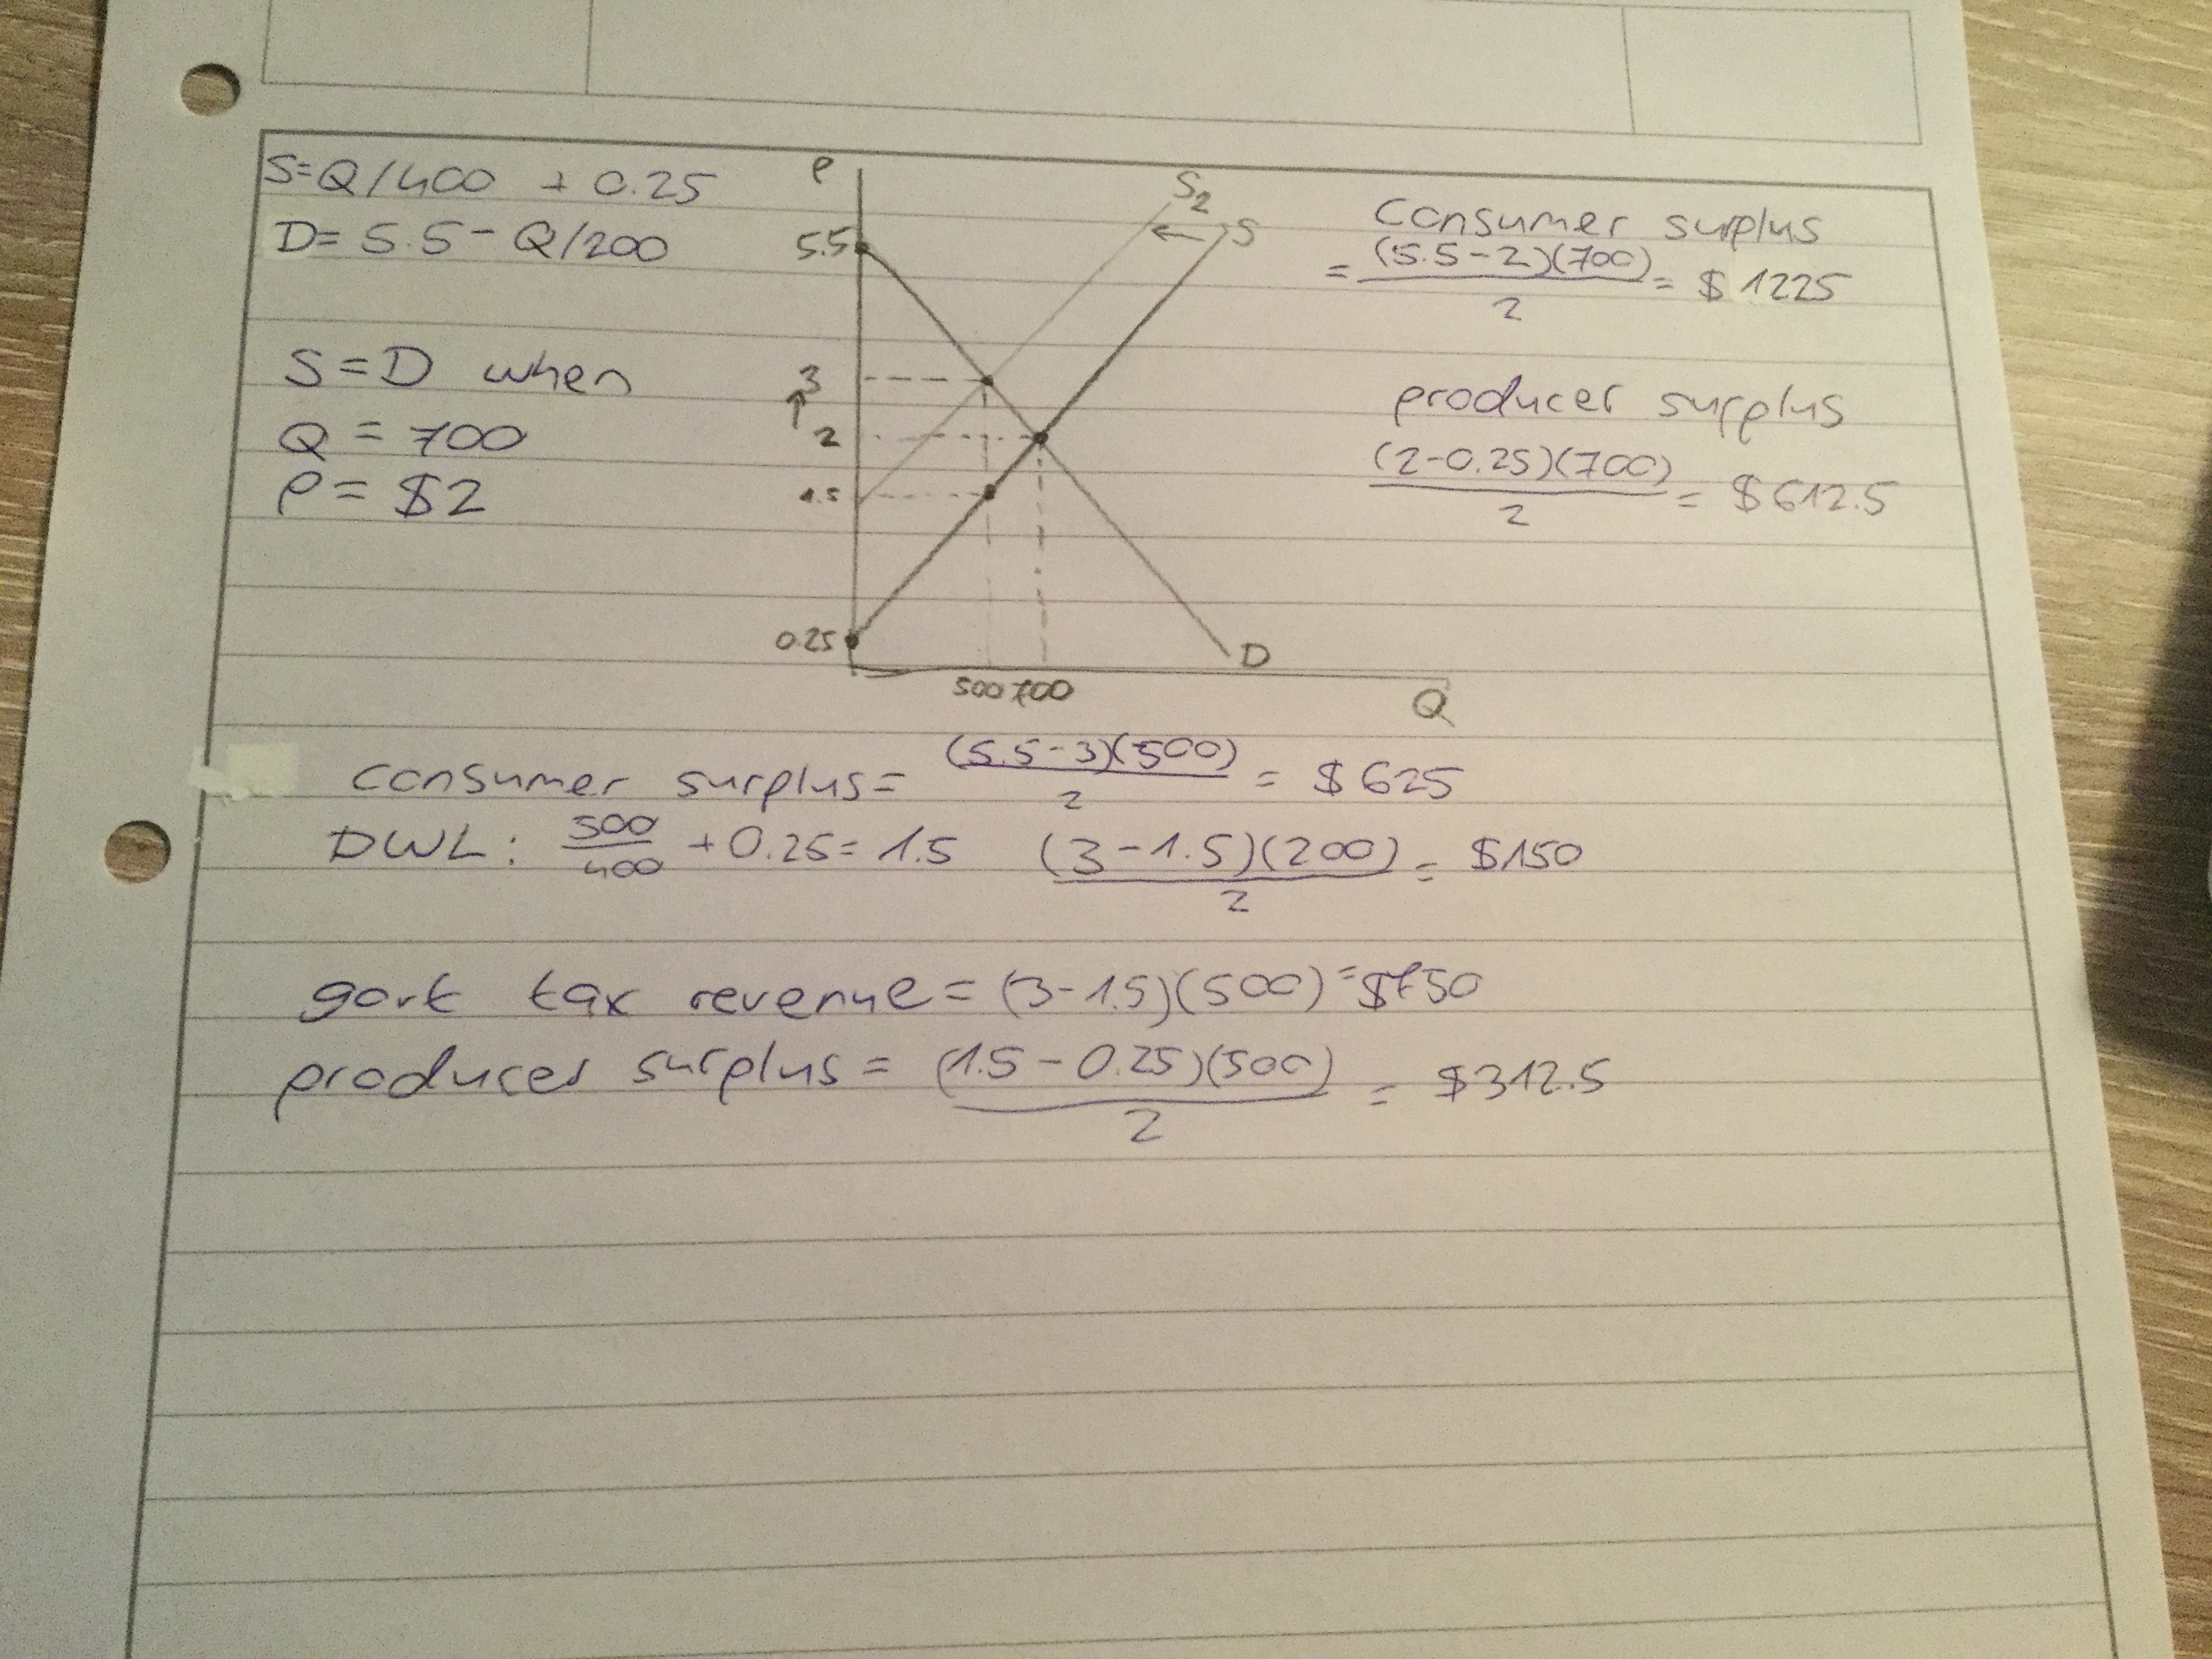 S=Q/400 + 0.25
D= 5.5 - Q/200
S=D when
Q = 700
P = $2
P
5.5
3
2
1.5
0.25
500 700
Q
S2
S
D
Consumer surplus
= (5.5-2)(700)/2 = $1225
producer surplus
(2-0.25)(700)/2 = $612.5
consumer surplus = (5.5-3)(500)/2 = $625
DWL: 500/400 +0.25= 1.5 (3-1.5)(200)/2 = $150
govt tax revenue = (3-1.5)(500) = $750
producer surplus = (1.5-0.25)(500)/2 = $312.5